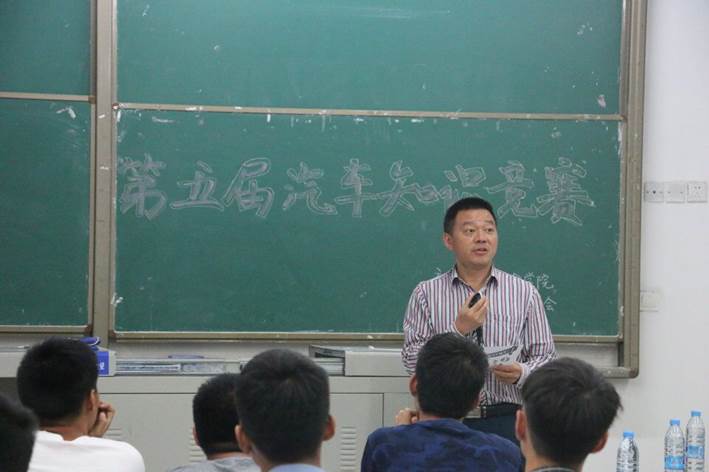 第五届汽车知识竞赛
学院
会